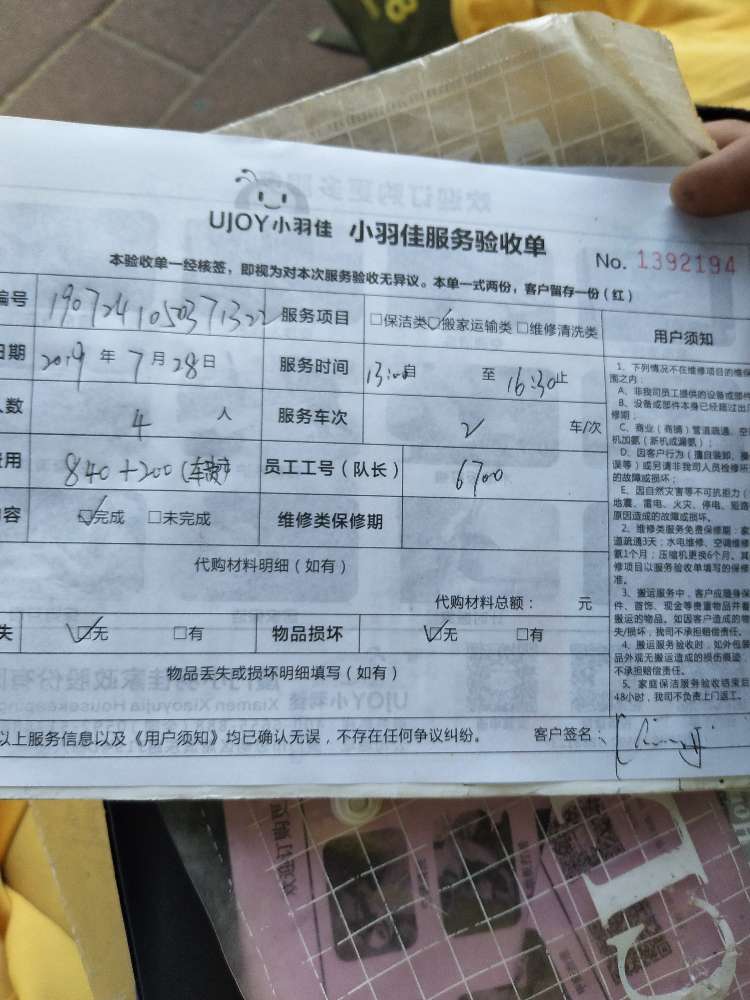 UJOY小羽佳 小羽佳服务验收单
No. 1392194
本验收单一经核签，即视为对本次服务验收无异议。本单一式两份，客户留存一份（红）
编号 1907241050371322 服务项目 □保洁类 ☑搬家运输类 □维修清洗类 用户须知
日期 2019 年 7 月 28 日 服务时间 13:00 自 至 16:30 止
人数 4 人 服务车次 2 车/次
费用 840+200 员工工号（队长） 6700
内容 ☑完成 □未完成 维修类保修期
代购材料明细（如有）
代购材料总额： 元
失 ☑无 □有 物品损坏 ☑无 □有
物品丢失或损坏明细填写（如有）
以上服务信息以及《用户须知》均已确认无误，不存在任何争议纠纷。 客户签名：
1、下列情况不在维修项目的维保
围之内：
A、非我司员工提供的设备或部件
B、设备或部件本身已经超过出厂
修期；
C、商业（商铺）管道疏通、空
机加氨（新机或漏氨）；
D、因客户行为（擅自装卸、操
误等）或另请非我司人员检修所
的故障或损坏；
E、因自然灾害等不可抗拒力（
地震、雷电、火灾、停电、短路
原因造成的故障或损坏。
2、维修类服务免费保修期：家
道疏通3天；水电维修、空调维修
氨1个月；压缩机更换6个月。其
修项目以服务验收单填写的保修
准。
3、搬运服务中，客户应随身保
件、首饰、现金等贵重物品并着
搬运的物品。如因客户造成的物
失/损坏，我司不承担赔偿责任。
4、搬运服务验收时，如外包装
品外观无搬运造成的损伤痕迹，
不承担赔偿责任。
5、家庭保洁服务验收结束后
48小时，我司不负责上门返工。